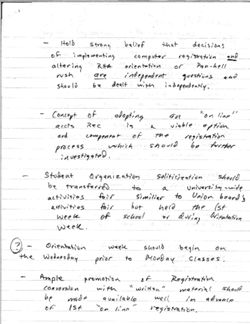 - Hold strong belief that decisions
of implementing computer registration and
altering orientation or Pan-hell
rush are independent questions and
should be dealt with independently.
- Concept of adopting an "on line"
accts Rec is a viable option
and component of the registration
process which should be further
investigated.
- Student Organization solicitization should
be transferred to a university-wide
activities fair similar to Union board's
activities fair but held the 1st
week of school or during Orientation
Week.
3 - Orientation week should begin on
the Wednesday prior to Monday Classes.
- Ample promotion of Registration
conversion with "written" material should
be made available well in advance
of 1st "on line" registration.